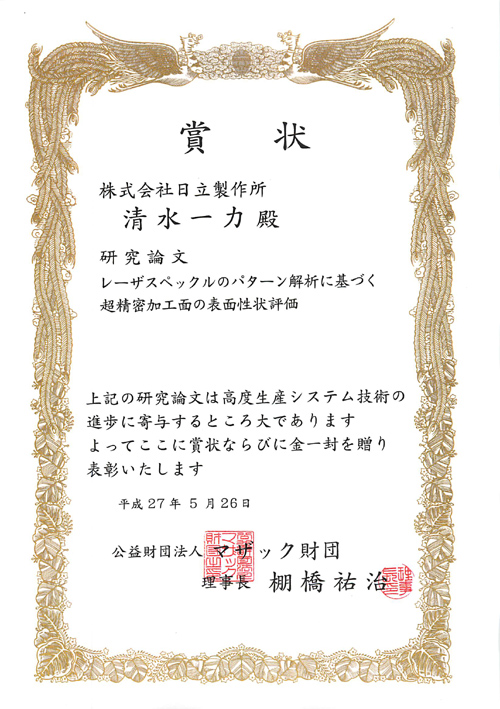 賞 状
株式会社日立製作所
清水一力殿
研究論文
レーザスペックルのパターン解析に基づく
超精密加工面の表面性状評価
上記の研究論文は高度生産システム技術の
進歩に寄与するところ大であります
よってここに賞状ならびに金一封を贈り
表彰いたします
平成27年5月26日
公益財団法人 マザック財団
理事長 棚橋祐治